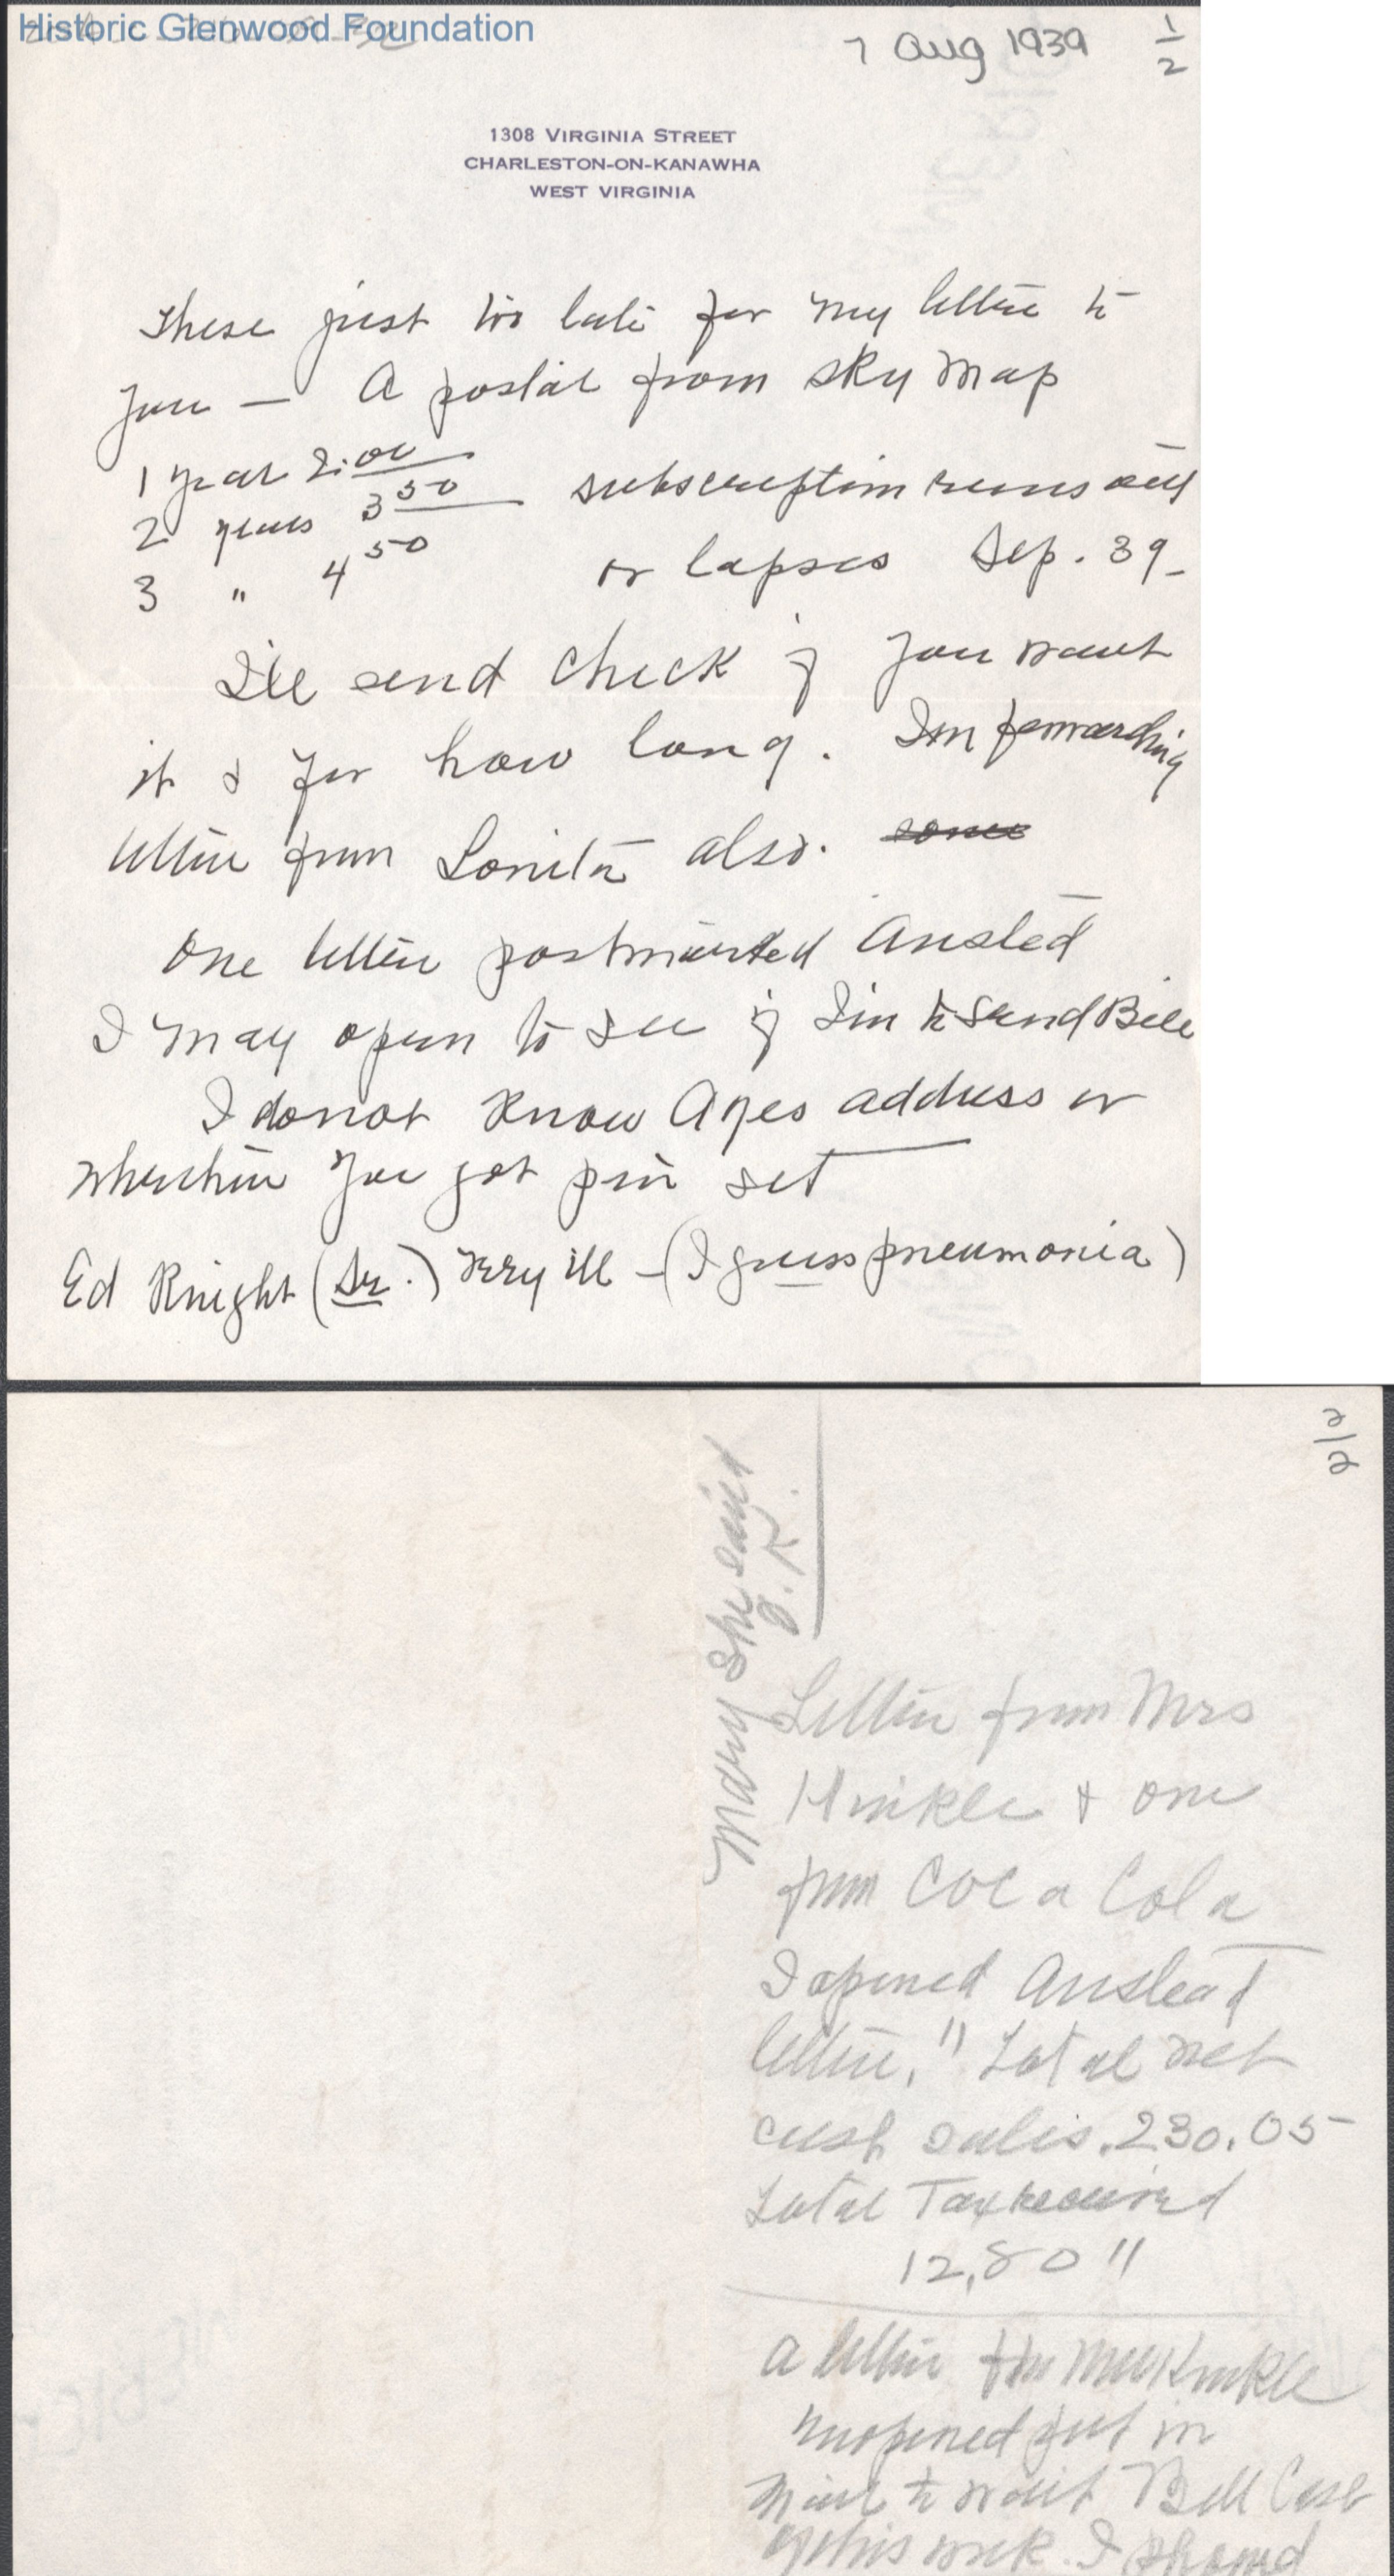 Historic Glenwood Foundation
7 Aug 1939 1/2
1308 VIRGINIA STREET
CHARLESTON-ON-KANAWHA
WEST VIRGINIA
These just too late for my letter to
you — A postal from Sky Map
1 year 2.00
2 years 3 50 subscription runs out
3 " 4 50 or lapses Sep. 39 -
I'll send check if you want
it & for how long. Im forwarding
letter from Lonita also. some
One letter postmarked Ansted
I may open to see if I'm to send Bill
I do not know Ages address or
whether you got pin set
Ed Knight (Sr.) very ill - (I guess pneumonia)
2/2
Mary She
Letter from Mrs
Hinkle & one
from Coca Cola
I opened Anstead
letter, " Total net
cash sales. 230.05
Total Tax received
12,80 "
A letter for Hinkle
unopened put in
to wait Bill
of this week. I